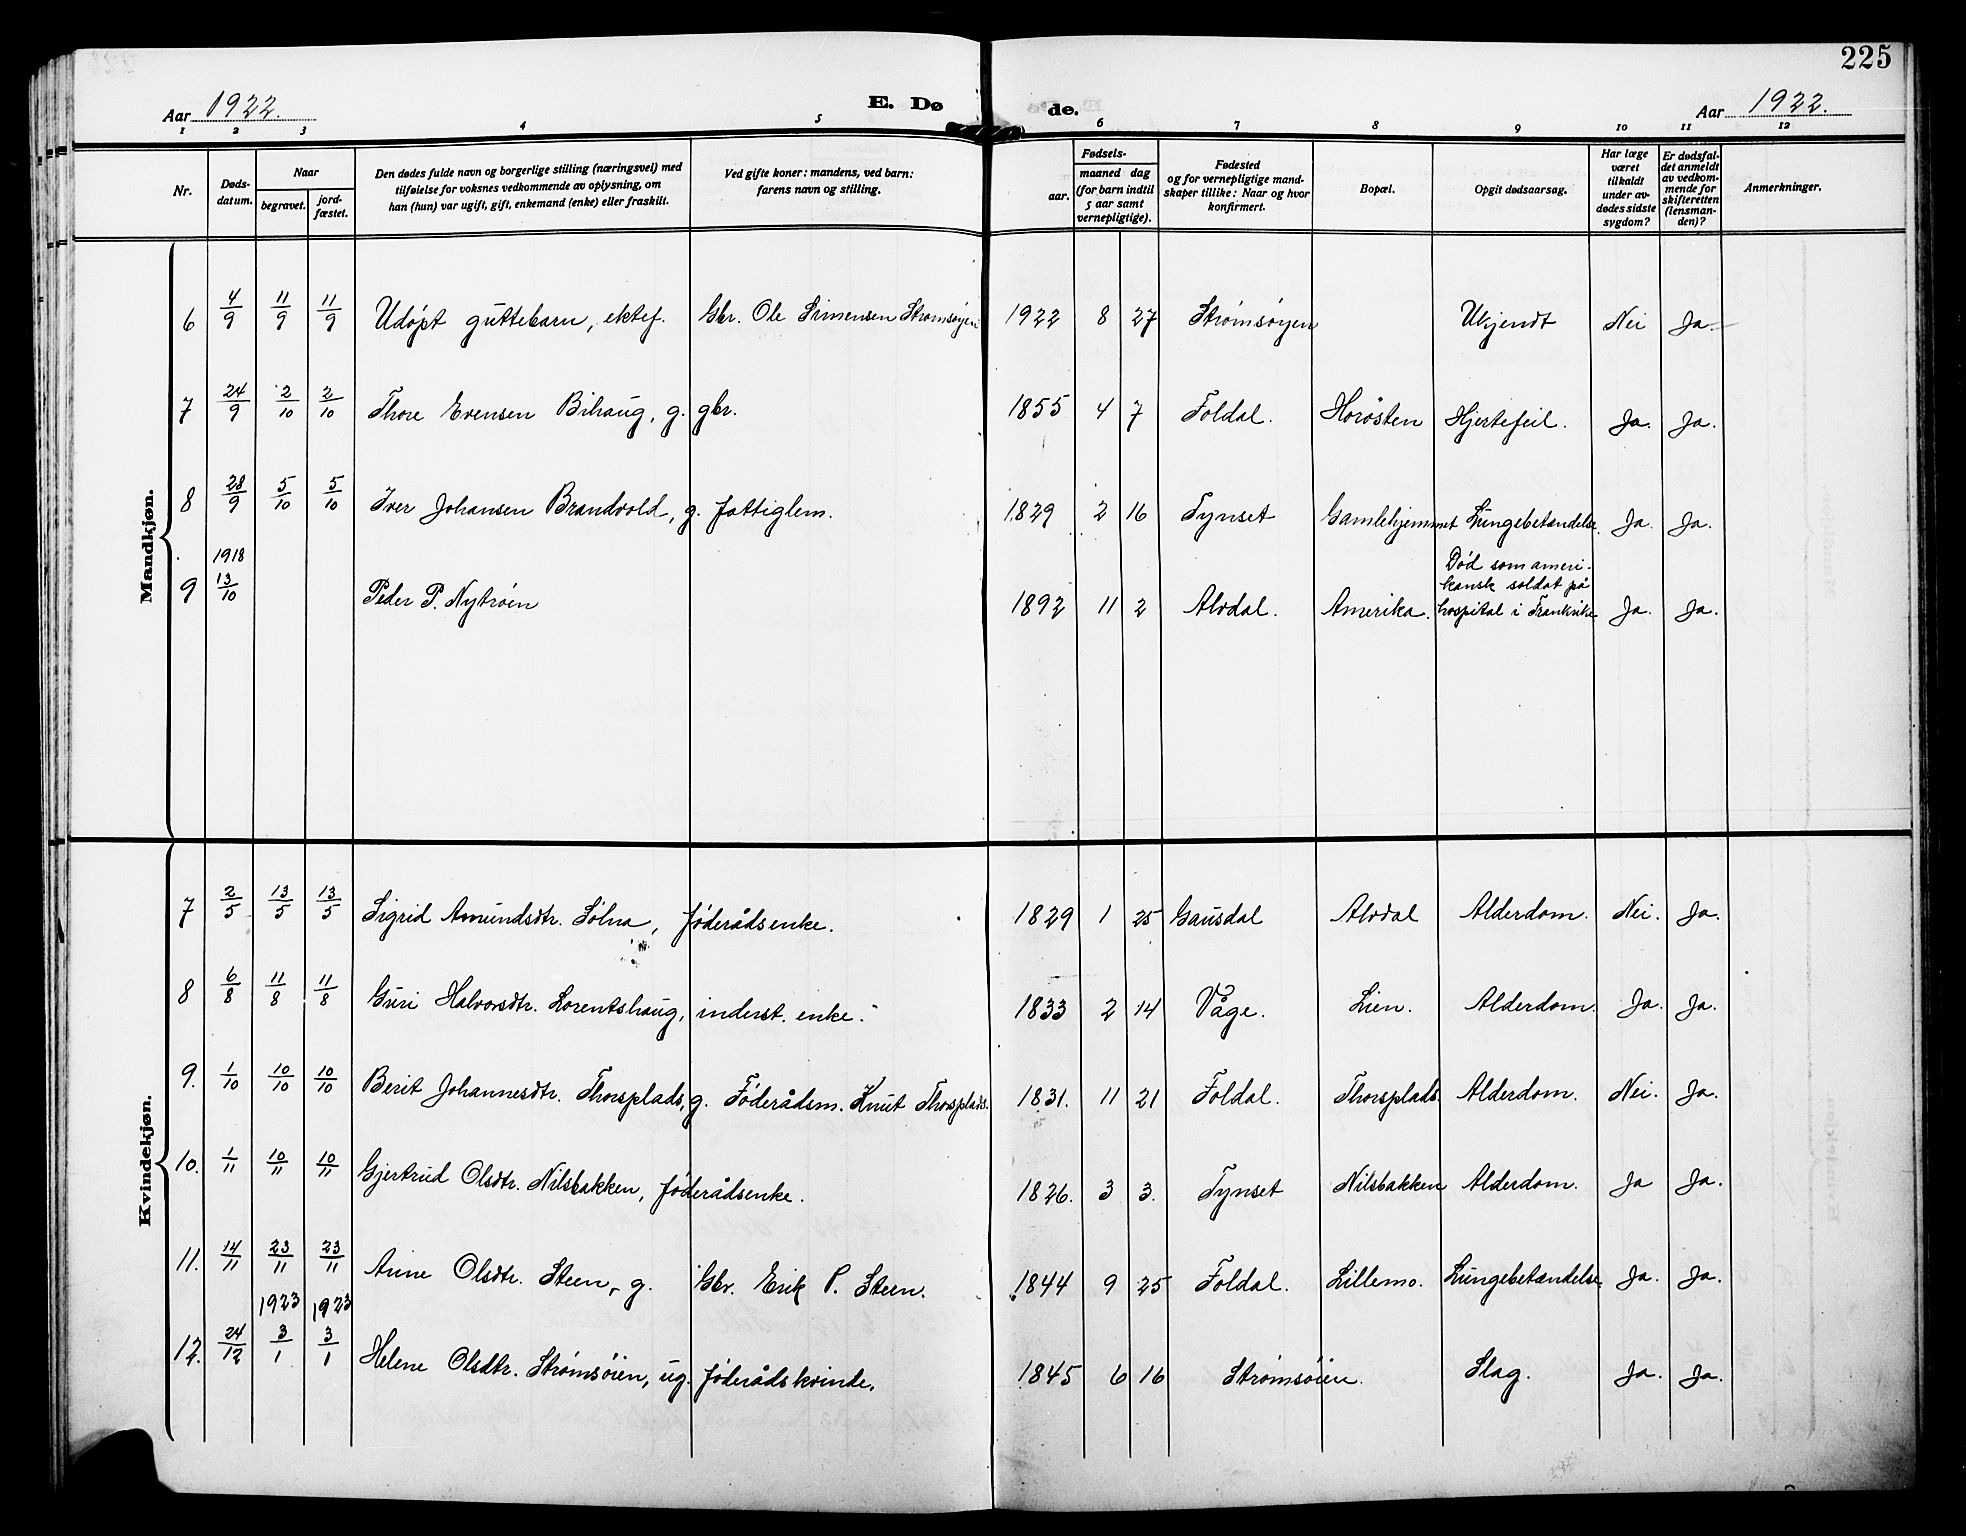 225
Aar 1922.
E. Dø
de.
Aar 1922.
1 2 3 4 5 6 7 8 9 10 11 12
Nr.
Døds-
datum.
Naar
begravet.
jord-
fæstet.
Den dødes fulde navn og borgerlige stilling (næringsvei) med
tilføielse for voksnes vedkommende av oplysning, om
han (hun) var ugift, gift, enkemand (enke) eller fraskilt.
Ved gifte koner: mandens, ved barn:
farens navn og stilling.
Fødsels-
aar.
maaned dag
(for barn indtil
5 aar samt
vernepligtige).
Fødested
og for vernepligtige mand-
skaper tillike: Naar og hvor
konfirmert.
Bopæl.
Opgit dødsaarsag.
Har læge
været
tilkaldt
under av-
dødes sidste
sygdom?
Er dødsfal-
det anmeldt
av vedkom-
mende for
skifteretten
(lensman-
den)?
Anmerkninger.
Mandkjøn.
6 4/9 11/9 11/9 Udøpt guttebarn, ektef. Gbr. Ole Simensen Strømsøyen 1922 8 27 Strømsøyen Ukjendt Nei Ja.
7 24/9 2/10 2/10 Thore Evensen Bihaug, g. gbr. 1855 4 7 Foldal. Horøsten Hjertefeil. Ja. Ja.
8 28/9 5/10 5/10 Iver Johansen Brandvold, g. fattiglem. 1829 2 16 Tynset Gamlehjemmet Lungebetændelse. Ja. Ja.
1918
9 13/10 Peder P. Nytrøen 1892 11 2 Alvdal. Amerika. Død som ameri-
kansk soldat på
hospital i Frankrike Ja. Ja.
Kvindekjøn.
7 2/5 13/5 13/5 Sigrid Amundsdtr. Sølna, føderådsenke. 1829 1 25 Gausdal Alvdal Alderdom. Nei. Ja.
8 6/8 11/8 11/8 Guri Halvorsdtr. Lorentshaug, inderst. enke. 1833 2 14 Våge. Lien. Alderdom. Ja. Ja.
9. 1/10 10/10 10/10 Berit Johannesdtr. Thorsplads, g. Føderådsm. Knut Thorsplads. 1831. 11 21 Foldal. Thorsplads. Alderdom. Nei. Ja.
10. 1/11 10/11 10/11 Gjertrud Olsdtr. Nilsbakken, føderådsenke. 1826. 3 3. Tynset Nilsbakken Alderdom. Ja Ja.
11. 14/11 23/11 23/11 Anne Olsdtr. Steen, g. Gbr. Erik P. Steen. 1844 9 25 Foldal. Lillemo. Lungebetændelse. Ja. Ja.
1923 1923
12. 24/12 3/1 3/1 Helene Olsdtr. Strømsøien, ug. føderådskvinde. 1845 6 16 Strømsøien. Slag. Ja. Ja.